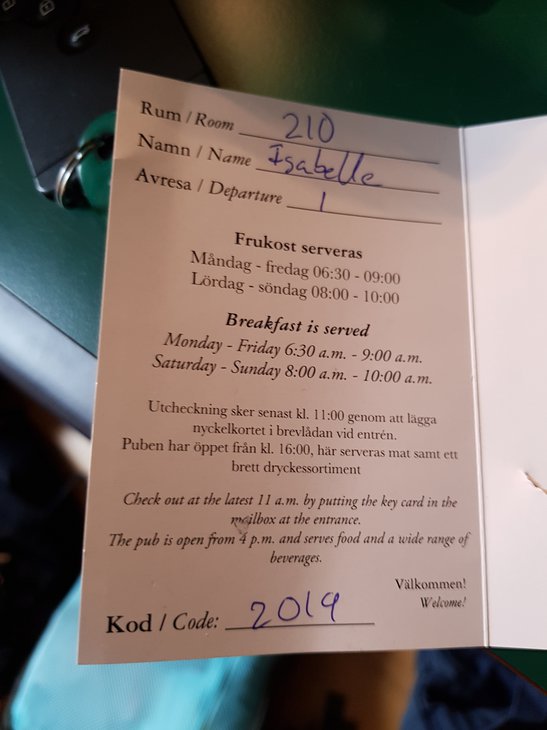 Rum / Room 210
Namn / Name Isabelle
Avresa / Departure 1
Frukost serveras
Måndag - fredag 06:30 - 09:00
Lördag - söndag 08:00 - 10:00
Breakfast is served
Monday - Friday 6:30 a.m. - 9:00 a.m.
Saturday - Sunday 8:00 a.m. - 10:00 a.m.
Utcheckning sker senast kl. 11:00 genom att lägga
nyckelkortet i brevlådan vid entrén.
Puben har öppet från kl. 16:00, här serveras mat samt ett
brett dryckessortiment
Check out at the latest 11 a.m. by putting the key card in the
mailbox at the entrance.
The pub is open from 4 p.m. and serves food and a wide range of
beverages.
Välkommen!
Welcome!
Kod / Code: 2019